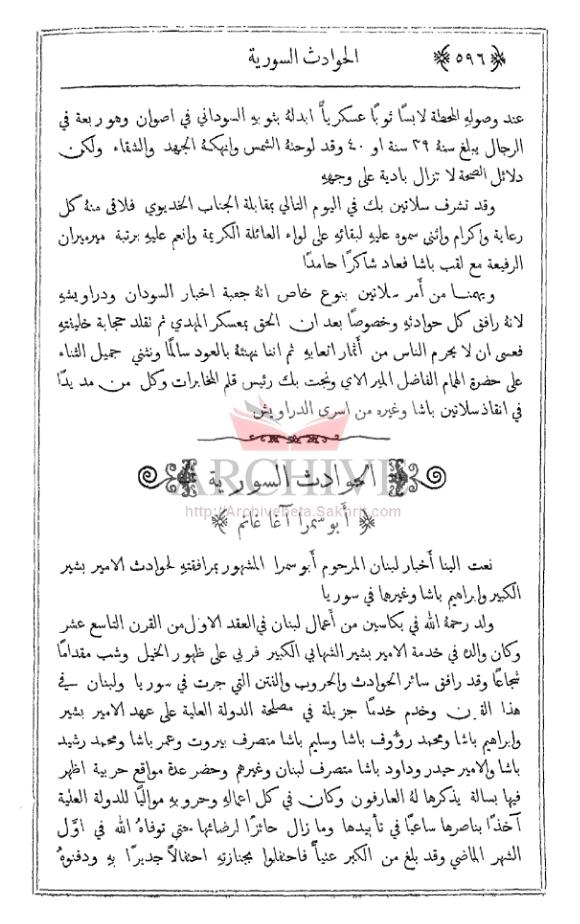 ﴿٥٩٦﴾ الحوادث السورية
عند وصوله المحطة لابسًا ثوبًا عسكريًا ابدلهُ بثوبهِ السوداني في اصوان وهو ربعة في
الرجال يبلغ سنهُ ٣٩ سنة او ٤٠ وقد لوحتهُ الشمس وانهكهُ الجهد والشقاء ولكن
دلائل الصحة لا تزال بادية على وجههِ
وقد تشرف سلاتين بك في اليوم التالي بمقابلة الجناب الخديوي فلاقى منهُ كل
رعاية وإكرام واثنى سموه عليهِ لبقائهِ على لواء العائلة الكريمة وانعم عليهِ برتبة ميرميران
الرفيعة مع لقب باشا فعاد شاكرًا حامدًا
ويهمنا من أمر سلاتين بنوع خاص انهُ جعبة اخبار السودان ودراويشهِ
لانهُ رافق كل حوادثهِ وخصوصًا بعد ان التحق بمعسكر المهدي ثم تقلد حجابة خليفتهِ
فعسى ان لا يحرم الناس من أثمار اتعابهِ ثم اننا نهنئهُ بالعود سالمًا ونثني جميل الثناء
على حضرة الهمام الفاضل الميرالاي ونجت بك رئيس قلم المخابرات وكل من مد يدًا
في انقاذ سلاتين باشا وغيره من اسرى الدراويش
ARCHIVE
الحوادث السورية
http://Archivebeta.Sakhrit.com
﴿ أبو سمرا آغا غانم ﴾
نعت الينا أخبار لبنان المرحوم أبو سمرا المشهور بمرافقتهِ لحوادث الامير بشير
الكبير وإبراهيم باشا وغيرها في سوريا
ولد رحمهُ الله في بكاسين من أعمال لبنان في العقد الاول من القرن التاسع عشر
وكان والده في خدمة الامير بشير الشهابي الكبير فربي على ظهور الخيل وشب مقدامًا
شجاعًا وقد رافق سائر الحوادث والحروب والفتن التي جرت في سوريا ولبنان في
هذا القرن وخدم خدمًا جزيلة في مصلحة الدولة العلية على عهد الامير بشير
وإبراهيم باشا ومحمد رؤوف باشا وسليم باشا متصرف بيروت وعمر باشا ومحمد رشيد
باشا والامير حيدر وداود باشا متصرف لبنان وغيرهم وحضر عدة مواقع حربية اظهر
فيها بسالة يذكرها لهُ العارفون وكان في كل اعمالهِ وحروبهِ مواليًا للدولة العلية
آخذًا بناصرها ساعيًا في تأييدها وما زال حائزًا لرضائها حتى توفاهُ الله في اوَّل
الشهر الماضي وقد بلغ من الكبر عتيًا فاحتفلوا بجنازتهِ احتفالاً جديرًا بهِ ودفنوهُ